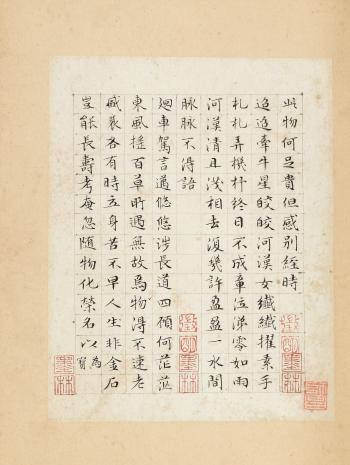 此物何足貴但感別經時
迢迢牽牛星皎皎河漢女纖纖擢素手
札札弄機杼終日不成章泣涕零如雨
河漢清且淺相去復幾許盈盈一水間
脉脉不得語
廻車駕言邁悠悠涉長道四顧何茫茫
東風搖百草所遇無故焉物得不速老
盛衰各有時立身苦不早人生非金石
豈能長壽考奄忽隨物化榮名以為寳